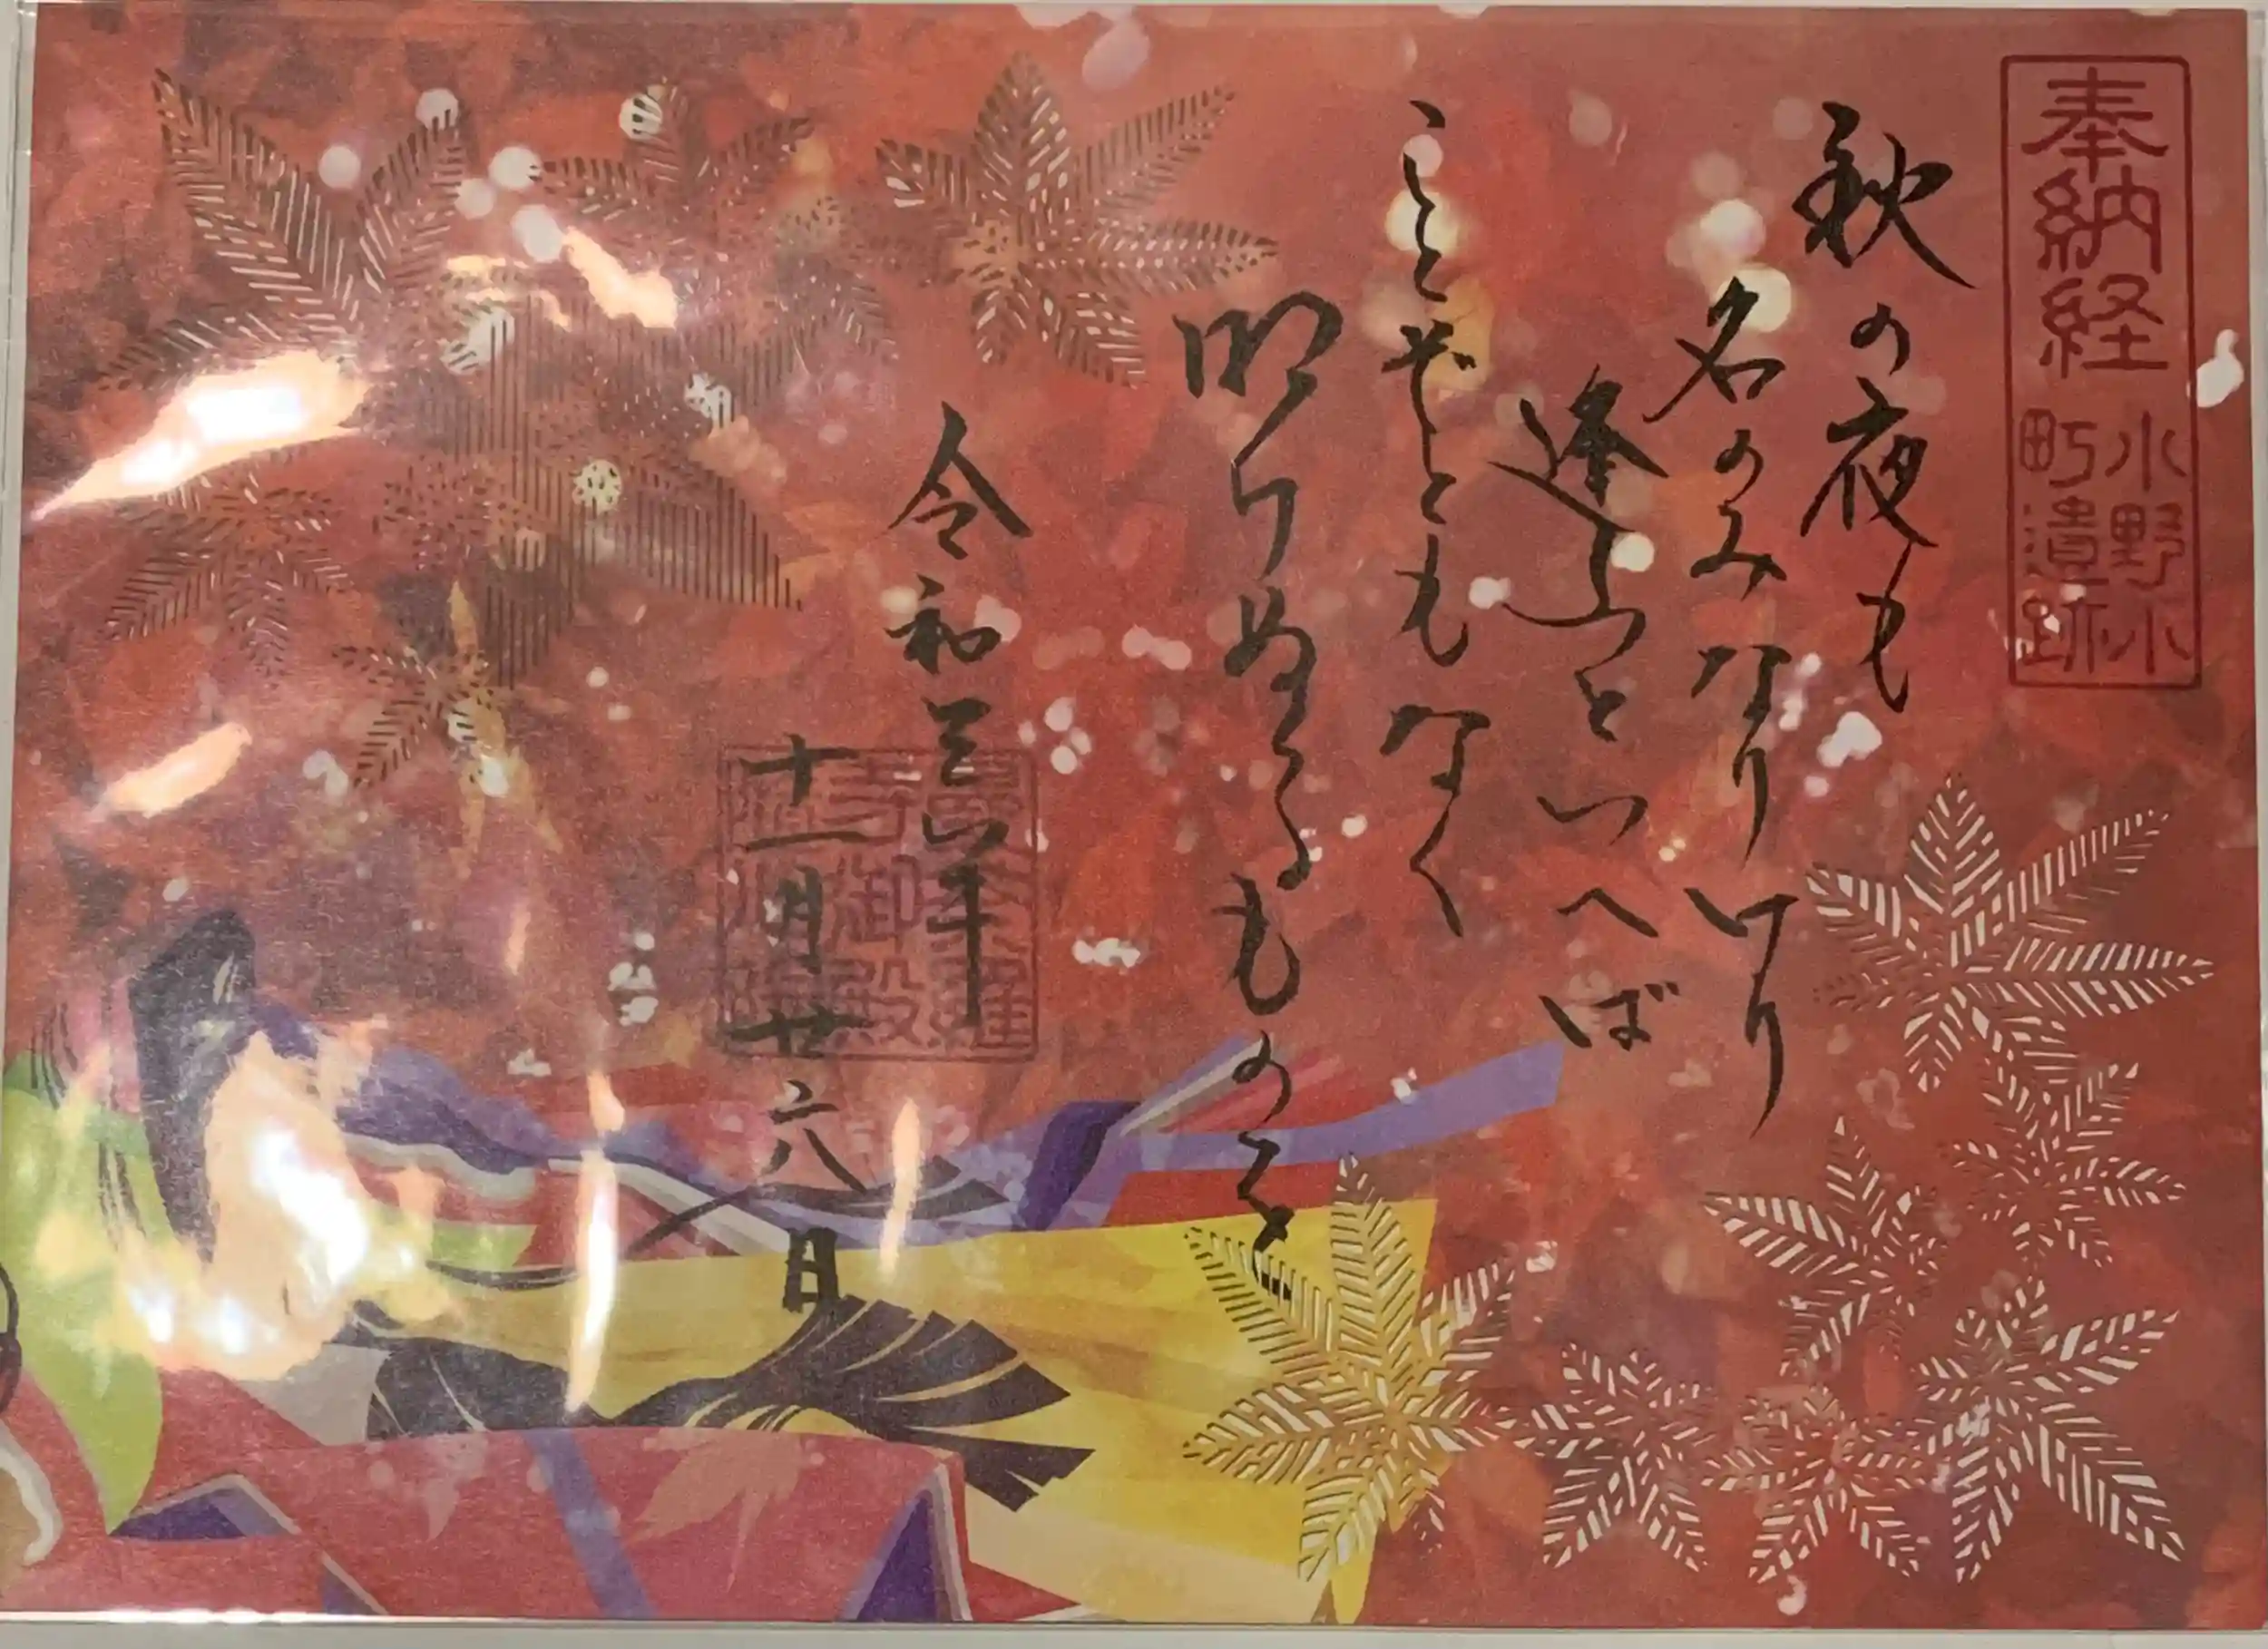 奉納経 小野小町遺跡
秋の夜も
名のみなりけり
逢ふといへば
ことぞともなく
明けぬるものを
令和三年
十一月廿六日
曼荼羅
寺御殿
隨心院